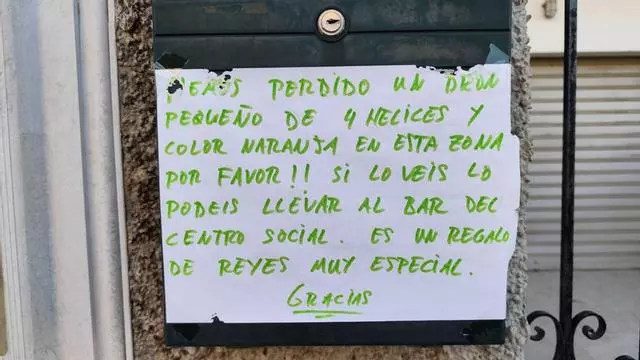 HEMOS PERDIDO UN DRON
PEQUEÑO DE 4 HELICES Y
COLOR NARANJA EN ESTA ZONA
POR FAVOR!! SI LO VEIS LO
PODEIS LLEVAR AL BAR DEL
CENTRO SOCIAL. ES UN REGALO
DE REYES MUY ESPECIAL.
GRACIAS